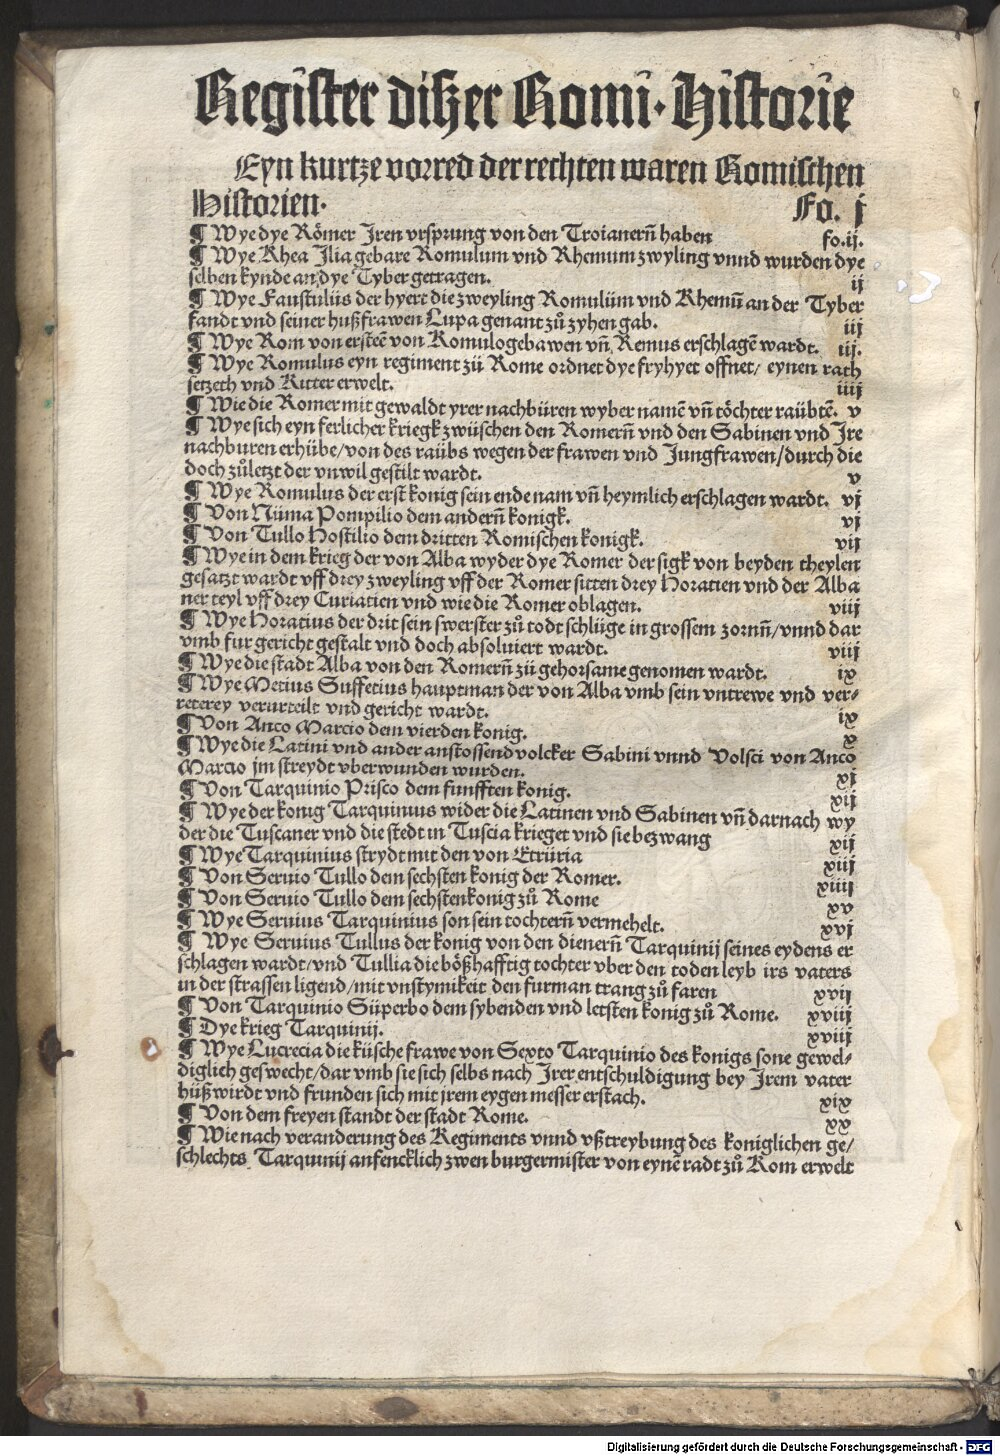 Register diszer Romi· Historie
Eyn kurtze vorred der rechten waren Romischen
Historien· Fo. j
¶ Wye dye Römer Jren vrsprung von den Troianern̄ haben fo.ij.
¶ Wye Rhea Jlia gebare Romulum vnd Rhemum zwyling vnnd wurden dye
selben kynde an dye Tyber getragen. ij
¶ Wye Faustulüs der hyert die zweyling Romulüm vnd Rhemū an der Tyber
fandt vnd seiner hußfrawen Lupa genant zů zyhen gab. iij
¶ Wye Rom von ersteē von Romulo gebawen vn̄ Remus erschlagē wardt. iij.
¶ Wye Romulus eyn regiment zü Rome ordnet dye fryhyet offnet/ eynen rath
setzeth vnd Ritter erwelt. iiij
¶ Wie die Romer mit gewaldt yrer nachbüren wyber namē vn̄ töchter raübtē. v
¶ Wye sich eyn ferlicher kriegk zwüschen den Romern̄ vnd den Sabinen vnd Jre
nachburen erhübe/ von des raübs wegen der frawen vnd Jungfrawen/ durch die
doch zůletzt der vnwil gestilt wardt. v
¶ Wye Romulus der erst konig sein ende nam vn̄ heymlich erschlagen wardt. vj
¶ Von Nüma Pompilio dem andern̄ konigk. vj
¶ Von Tullo Hostilio dem dritten Romischen konigk. vij
¶ Wye in dem krieg der von Alba wyder dye Romer der sigk von beyden theylen
gesatzt wardt vff drey zweyling vff der Romer sitten drey Horatien vnd der Alba
ner teyl vff drey Curiatien vnd wie die Romer oblagen. viij
¶ Wye Horatius der drit sein swerster zů todt schlüge in grossem zornn̄/ vnnd dar
vmb fur gericht gestalt vnd doch absoluiert wardt. viij
¶ Wye die stadt Alba von den Romern̄ zü gehorsame genomen wardt. ix
¶ Wye Metius Suffetius hauptman der von Alba vmb sein vntrewe vnd ver⸗
reterey verurteilt vnd gericht wardt. ix
¶ Von Anco Marcio dem vierden konig. x
¶ Wye die Latini vnd ander anstossend volcker Sabini vnnd Volsci von Anco
Marcio jm streydt vberwunden wurden. xj
¶ Von Tarquinio Prisco dem funfften konig. xij
¶ Wye der konig Tarquinuus wider die Latinen vnd Sabinen vn̄ darnach wy
der die Tuscaner vnd die stedt in Tuscia krieget vnd sie bezwang xij
¶ Wye Tarquinius strydt mit den von Etrüria xiij
¶ Von Seruio Tullo dem sechsten konig der Romer. xiiij
¶ Von Seruio Tullo dem sechsten konig zů Rome xv
¶ Wye Seruius Tarquinius son sein tochtern̄ vermehelt. xvj
¶ Wye Seruius Tullus der konig von den dienern̄ Tarquinij seines eydens er
schlagen wardt/ vnd Tullia die bößhafftig tochter vber den toden leyb irs vaters
in der strassen ligend/ mit vnstymikeit den furman trang zů faren xvij
¶ Von Tarquinio Süperbo dem sybenden vnd letsten konig zů Rome. xviij
¶ Dye krieg Tarquinij. xviij
¶ Wye Lucrecia die küsche frawe von Sexto Tarquinio des konigs sone gewel⸗
diglich geswecht/ dar vmb sie sich selbs nach Jrer entschuldigung bey Jrem vater
hüßwirdt vnd frunden sich mit jrem eygen messer erstach. xix
¶ Von dem freyen standt der stadt Rome. xx
¶ Wie nach veranderung des Regiments vnnd vßtreybung des koniglichen ge/
schlechts Tarquinij anfencklich zwen burgermister von eynē radt zů Rom erwelt
Digitalisierung gefördert durch die Deutsche Forschungsgemeinschaft - DFG